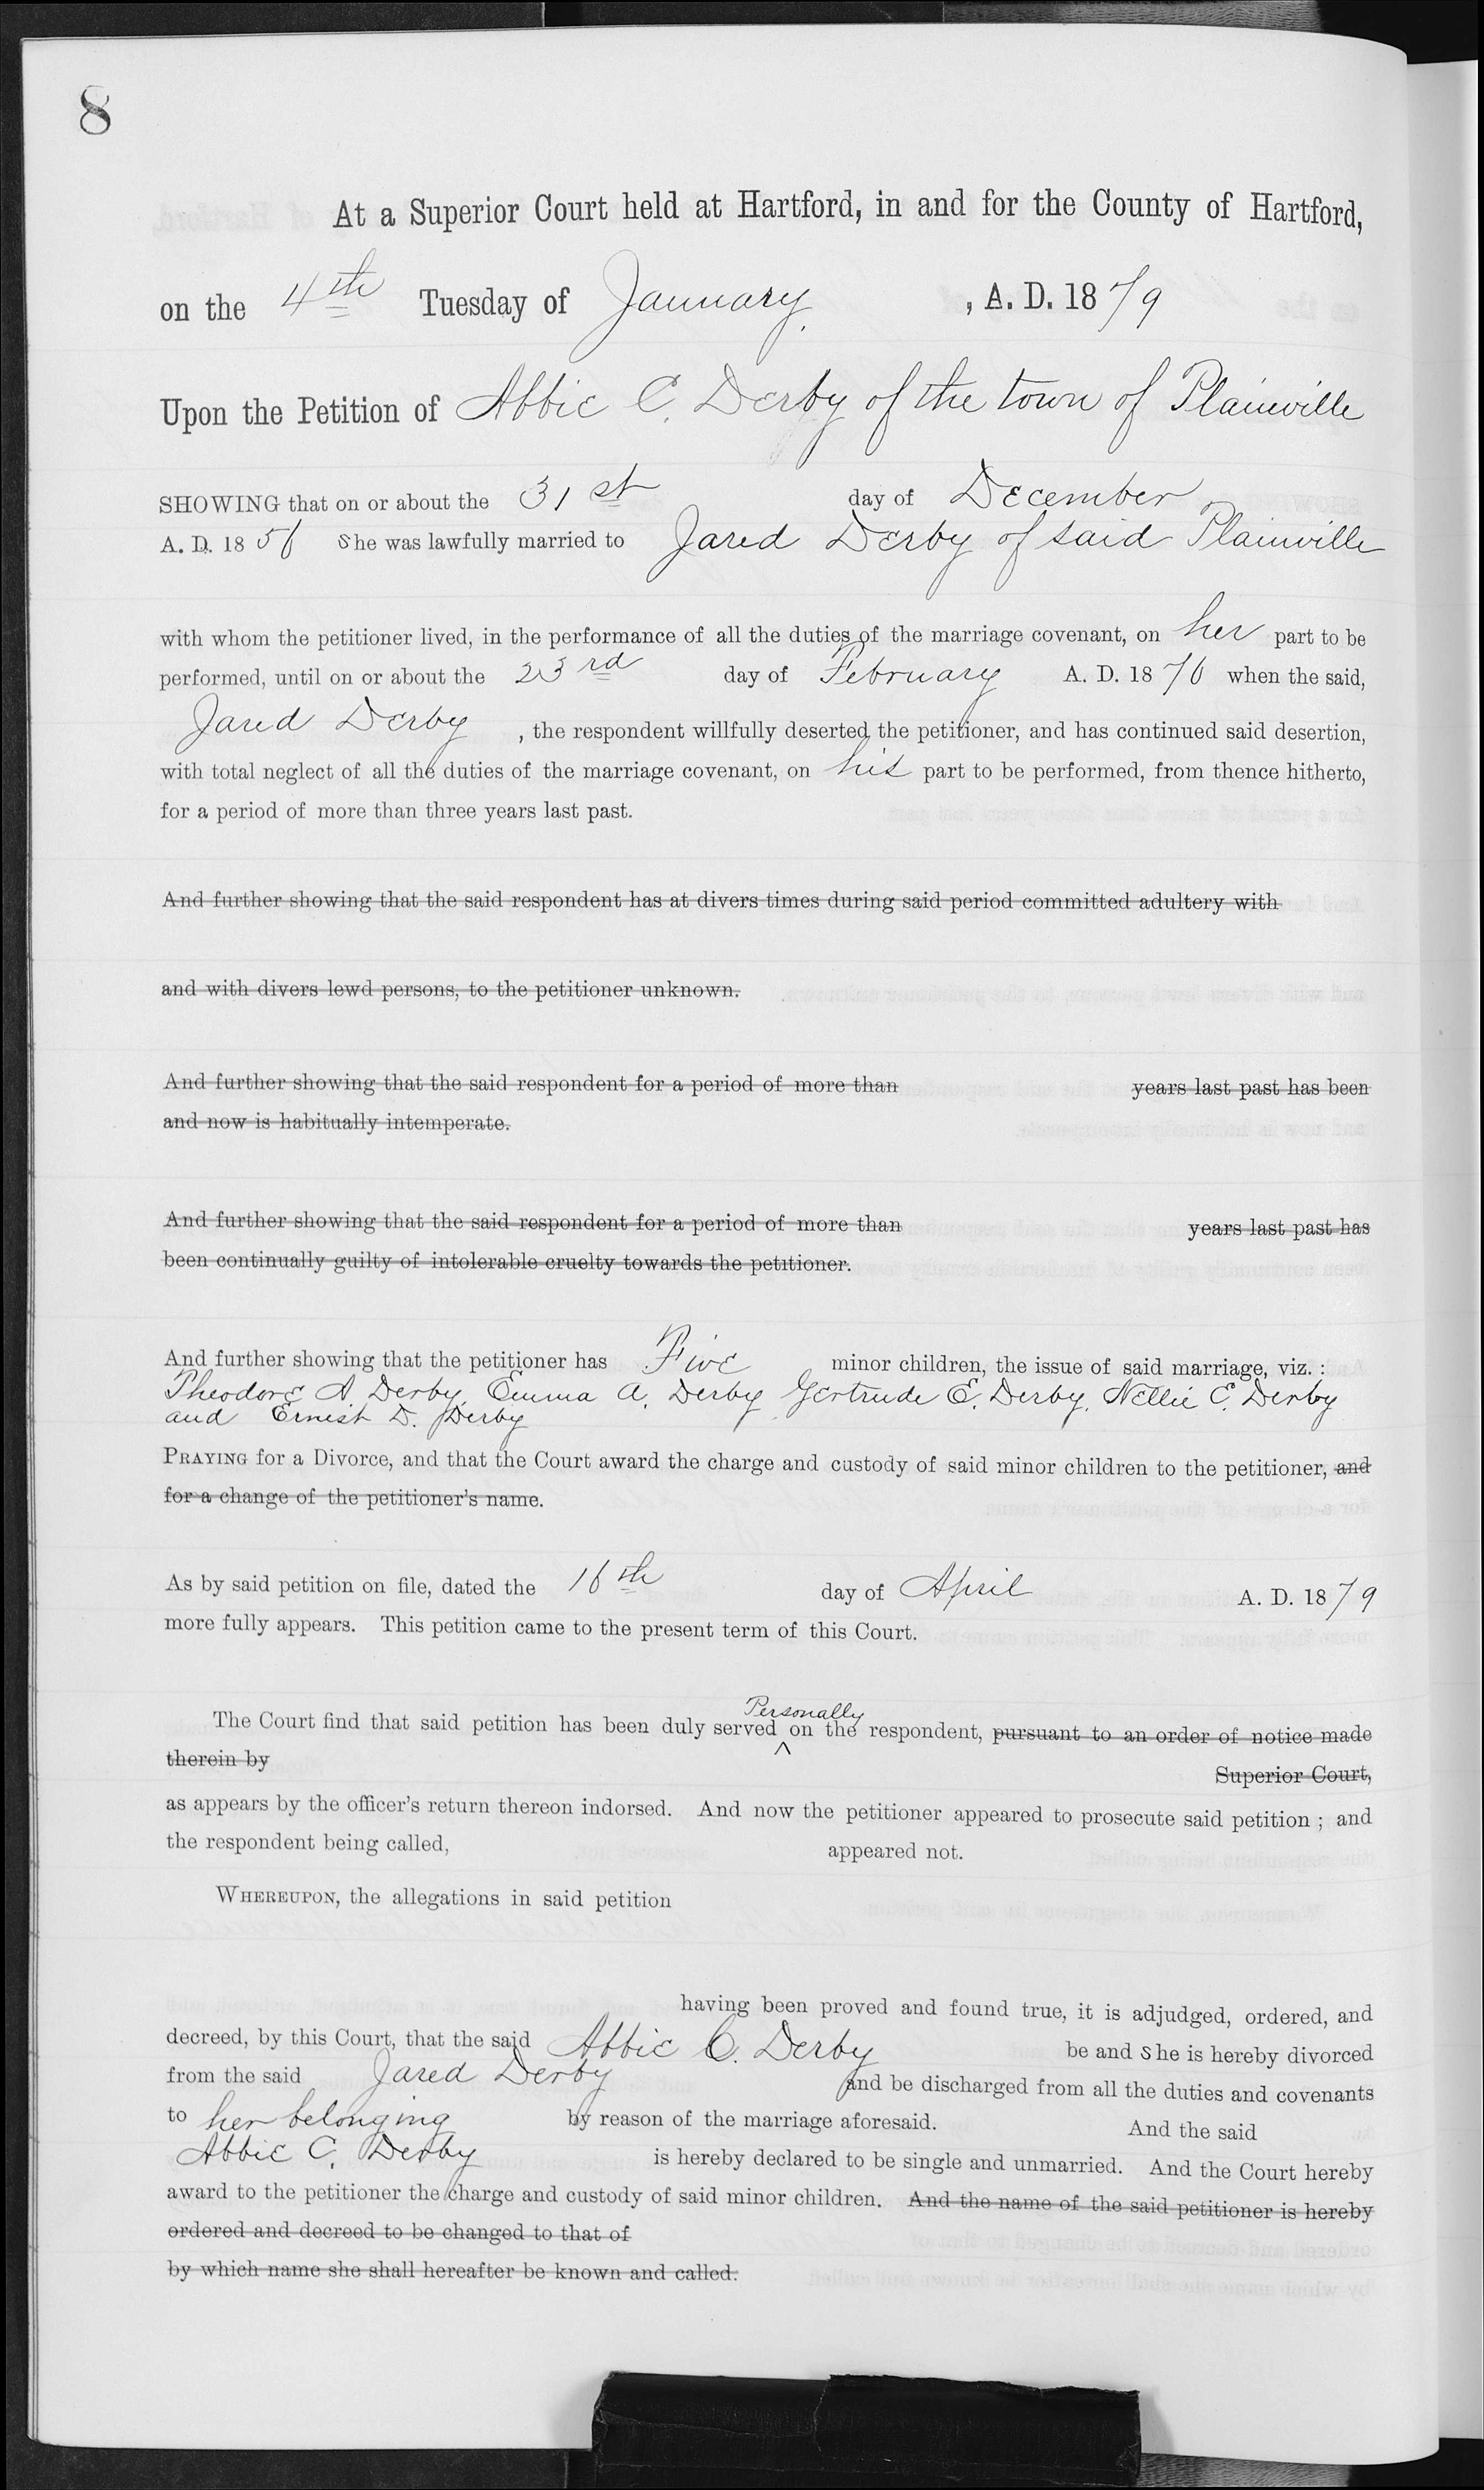 8
At a Superior Court held at Hartford, in and for the County of Hartford,
on the 4th Tuesday of January, A. D. 1879
Upon the Petition of Abbie C. Derby of the town of Plainville
SHOWING that on or about the 31st day of December
A. D. 1856 She was lawfully married to Jared Derby of said Plainville
with whom the petitioner lived, in the performance of all the duties of the marriage covenant, on her part to be
performed, until on or about the 23rd day of February A. D. 1876 when the said,
Jared Derby, the respondent willfully deserted the petitioner, and has continued said desertion,
with total neglect of all the duties of the marriage covenant, on his part to be performed, from thence hitherto,
for a period of more than three years last past.
And further showing that the said respondent has at divers times during said period committed adultery with
and with divers lewd persons, to the petitioner unknown.
And further showing that the said respondent for a period of more than years last past has been
and now is habitually intemperate.
And further showing that the said respondent for a period of more than years last past has
been continually guilty of intolerable cruelty towards the petitioner.
And further showing that the petitioner has Five minor children, the issue of said marriage, viz. :
Theodore A. Derby, Emma A. Derby Gertrude E. Derby, Nellie C. Derby
and Ernest D. Derby
PRAYING for a Divorce, and that the Court award the charge and custody of said minor children to the petitioner, and
for a change of the petitioner's name.
As by said petition on file, dated the 16th day of April A. D. 1879
more fully appears. This petition came to the present term of this Court.
Personally
The Court find that said petition has been duly served ^ on the respondent, pursuant to an order of notice made
therein by Superior Court,
as appears by the officer's return thereon indorsed. And now the petitioner appeared to prosecute said petition ; and
the respondent being called, appeared not.
WHEREUPON, the allegations in said petition
having been proved and found true, it is adjudged, ordered, and
decreed, by this Court, that the said Abbie C. Derby be and She is hereby divorced
from the said Jared Derby and be discharged from all the duties and covenants
to her belonging by reason of the marriage aforesaid. And the said
Abbie C. Derby is hereby declared to be single and unmarried. And the Court hereby
award to the petitioner the charge and custody of said minor children. And the name of the said petitioner is hereby
ordered and decreed to be changed to that of
by which name she shall hereafter be known and called.